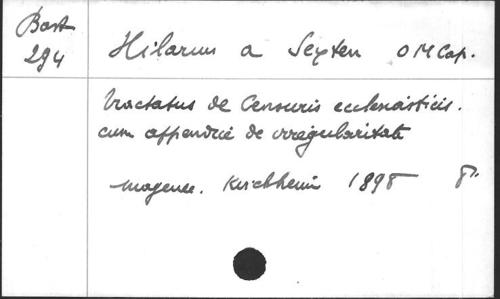 Bast.
294
Hilarius a Sexten OMCap.
Tractatus de Censuris ecclesiasticis.
cum appendice de irregularitate
Mogunt. Kirchheim 1898 8°.